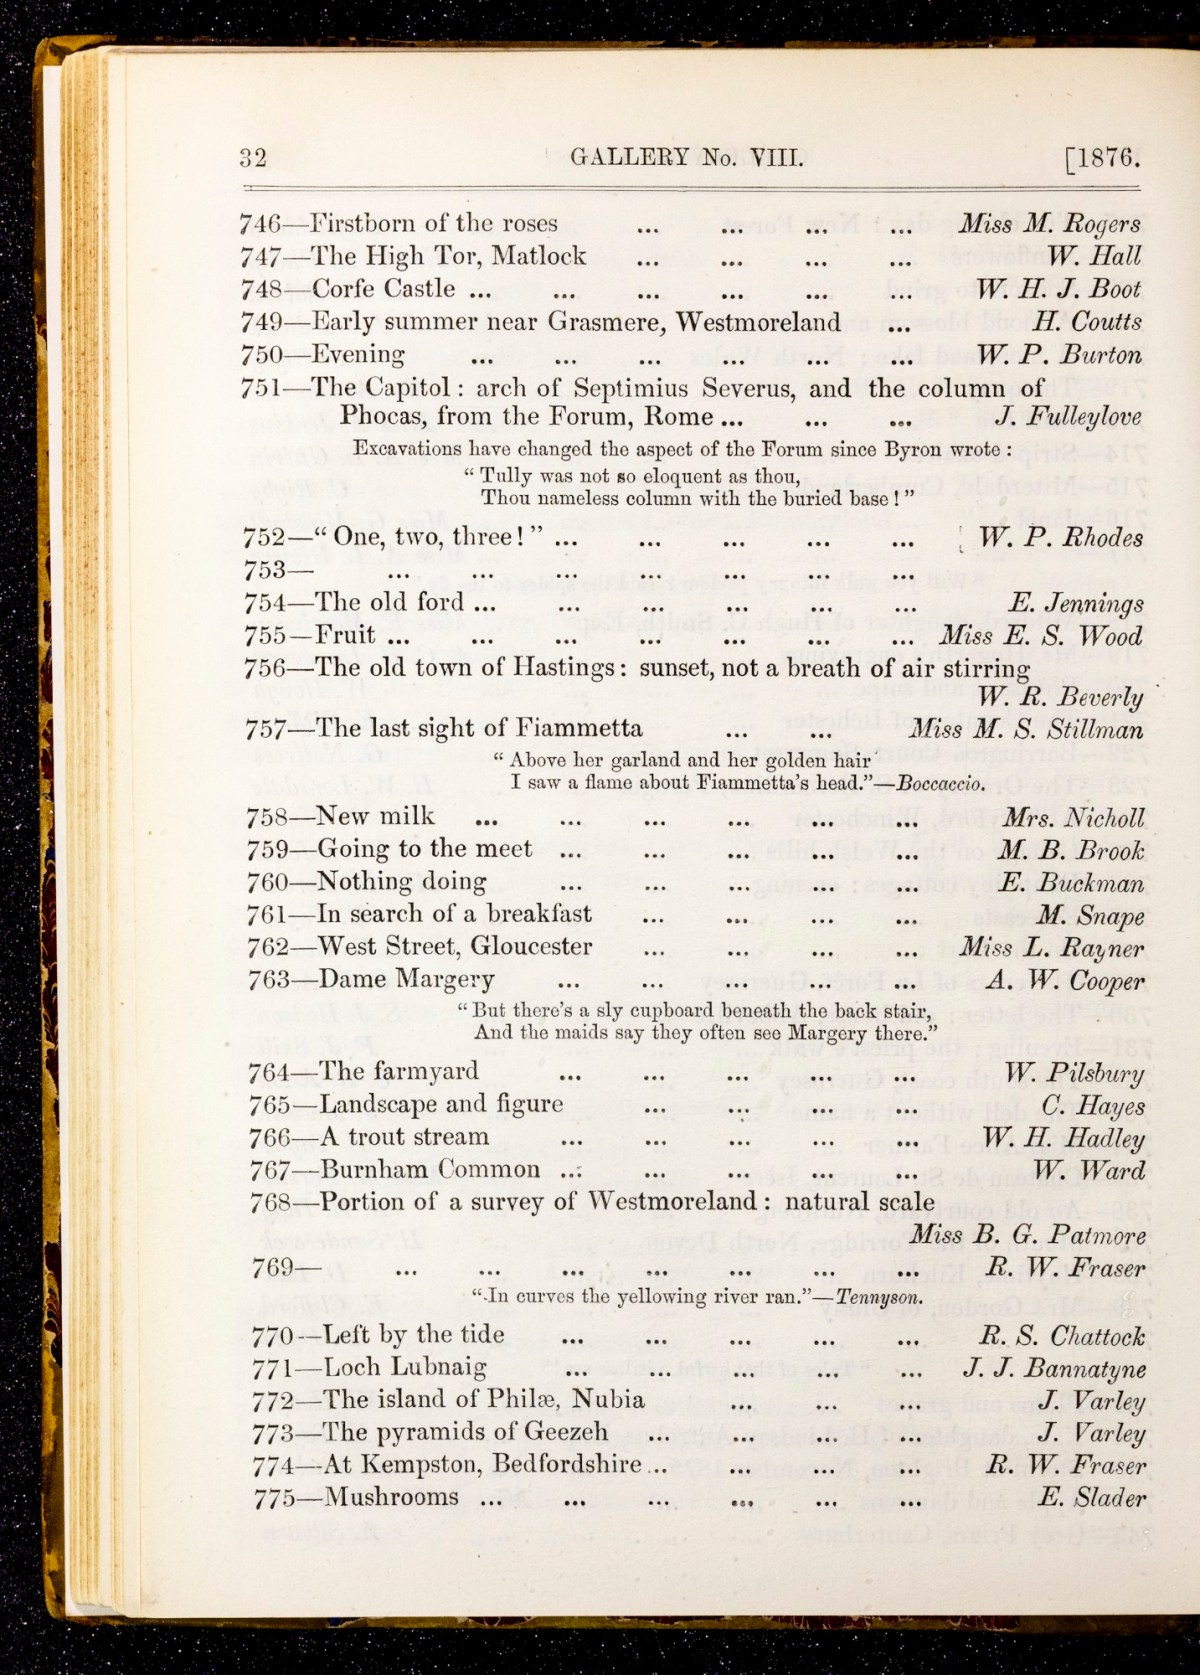 32 GALLERY No. VIII. [1876.
746—Firstborn of the roses ... ... ... ... Miss M. Rogers
747—The High Tor, Matlock ... ... ... ... W. Hall
748—Corfe Castle ... ... ... ... ... ... W. H. J. Boot
749—Early summer near Grasmere, Westmoreland ... H. Coutts
750—Evening ... ... ... ... ... ... W. P. Burton
751—The Capitol: arch of Septimius Severus, and the column of
Phocas, from the Forum, Rome ... ... ... J. Fulleylove
Excavations have changed the aspect of the Forum since Byron wrote:
“Tully was not so eloquent as thou,
Thou nameless column with the buried base!”
752—“One, two, three!” ... ... ... ... ... W. P. Rhodes
753— ... ... ... ... ... ... ...
754—The old ford ... ... ... ... ... ... E. Jennings
755—Fruit ... ... ... ... ... ... ... Miss E. S. Wood
756—The old town of Hastings: sunset, not a breath of air stirring
W. R. Beverly
757—The last sight of Fiammetta ... ... Miss M. S. Stillman
“Above her garland and her golden hair
I saw a flame about Fiammetta's head.”—Boccaccio.
758—New milk ... ... ... ... ... ... Mrs. Nicholl
759—Going to the meet ... ... ... ... ... M. B. Brook
760—Nothing doing ... ... ... ... ... E. Buckman
761—In search of a breakfast ... ... ... ... M. Snape
762—West Street, Gloucester ... ... ... ... Miss L. Rayner
763—Dame Margery ... ... ... ... ... A. W. Cooper
“But there's a sly cupboard beneath the back stair,
And the maids say they often see Margery there.”
764—The farmyard ... ... ... ... ... W. Pilsbury
765—Landscape and figure ... ... ... ... C. Hayes
766—A trout stream ... ... ... ... ... W. H. Hadley
767—Burnham Common ... ... ... ... ... W. Ward
768—Portion of a survey of Westmoreland: natural scale
Miss B. G. Patmore
769— ... ... ... ... ... ... ... R. W. Fraser
“In curves the yellowing river ran.”—Tennyson.
770—Left by the tide ... ... ... ... ... R. S. Chattock
771—Loch Lubnaig ... ... ... ... ... J. J. Bannatyne
772—The island of Philæ, Nubia ... ... ... J. Varley
773—The pyramids of Geezeh ... ... ... ... J. Varley
774—At Kempston, Bedfordshire ... ... ... ... R. W. Fraser
775—Mushrooms ... ... ... ... ... ... E. Slader